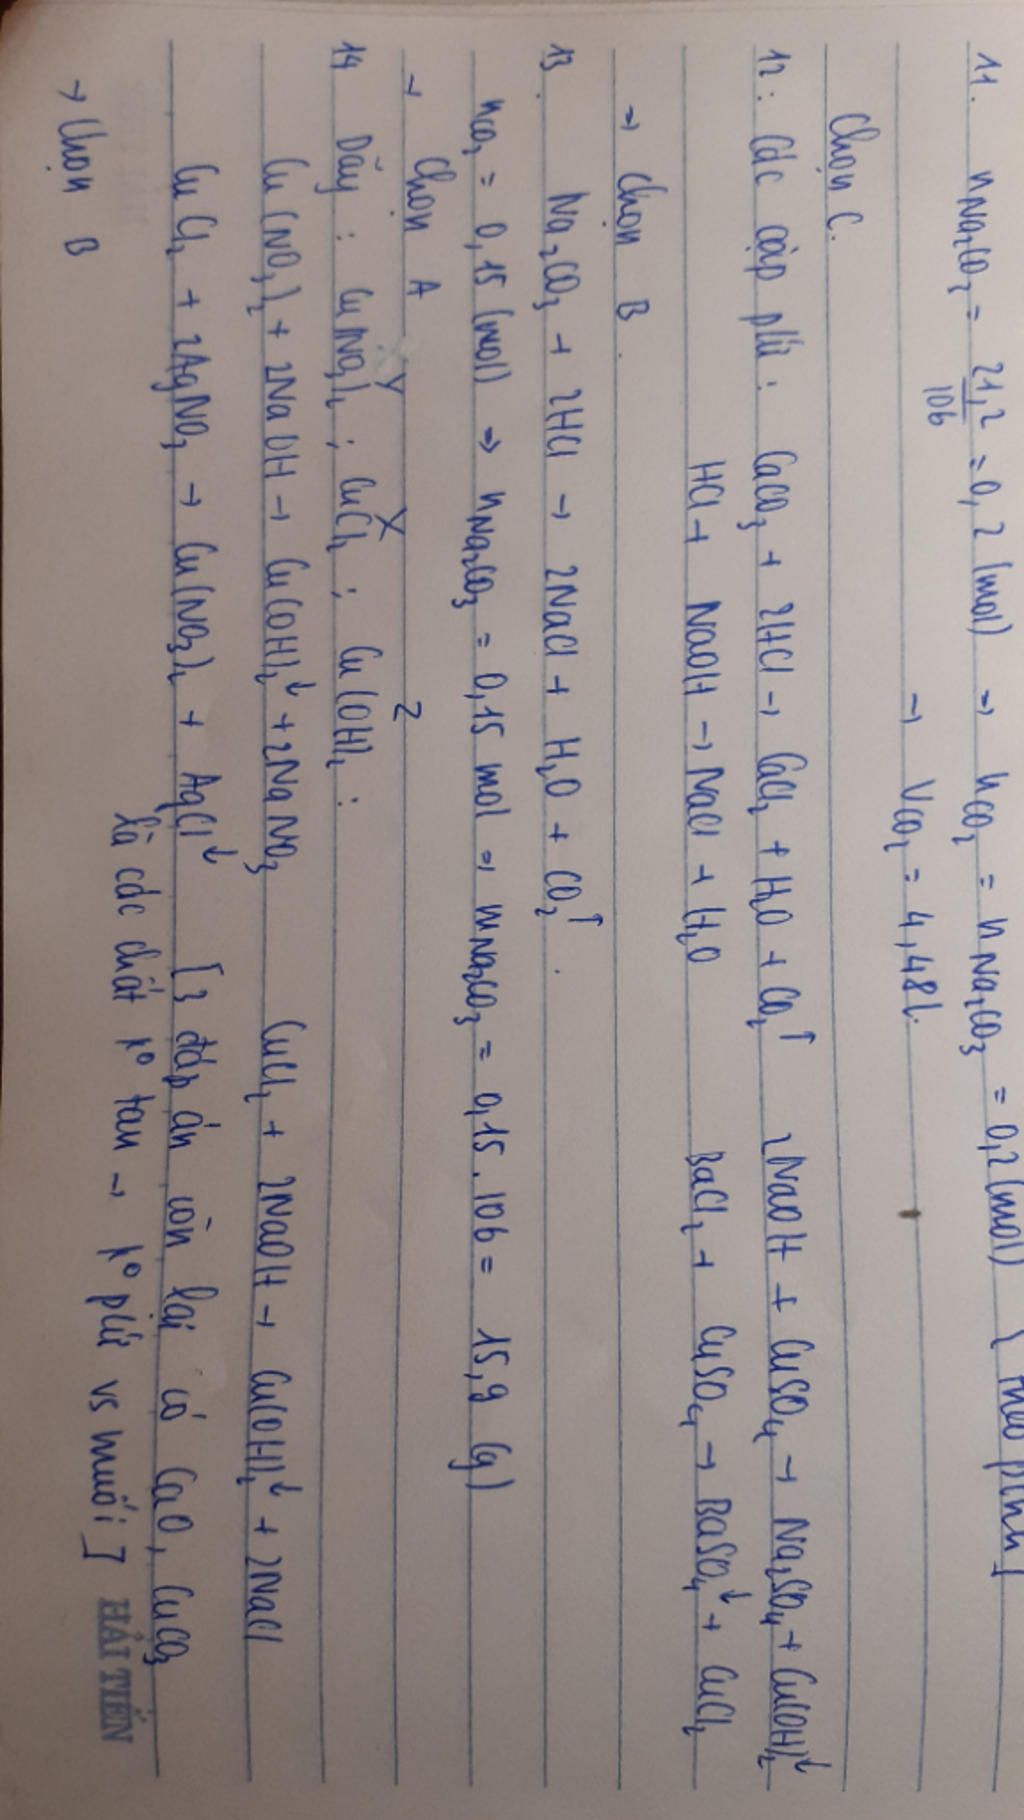 11. nNa₂CO₃ = 21,2/106 = 0,2 (mol) ⇒ nCO₂ = nNa₂CO₃ = 0,2 (mol) ( theo pthh )
→ VCO₂ = 4,48 l.
Chọn C.
12: Các cặp pứ: CaCO₃ + 2HCl → CaCl₂ + H₂O + CO₂↑ 2NaOH + CuSO₄ → Na₂SO₄ + Cu(OH)₂↓
HCl + NaOH → NaCl + H₂O BaCl₂ + CuSO₄ → BaSO₄↓ + CuCl₂
⇒ Chọn B.
13. Na₂CO₃ + 2HCl → 2NaCl + H₂O + CO₂↑.
nCO₂ = 0,15 (mol) ⇒ nNa₂CO₃ = 0,15 mol ⇒ mNa₂CO₃ = 0,15.106 = 15,9 (g)
→ Chọn A
Y X Z
14 Dãy: Cu(NO₃)₂; CuCl₂; Cu(OH)₂:
Cu(NO₃)₂ + 2NaOH → Cu(OH)₂↓ + 2NaNO₃ CuCl₂ + 2NaOH → Cu(OH)₂↓ + 2NaCl
CuCl₂ + 2AgNO₃ → Cu(NO₃)₂ + AgCl↓ [3 đáp án còn lại có CuO, CuCO₃
là các chất k° tan → k° pứ vs muối]
→ Chọn B
HẢI TIẾN